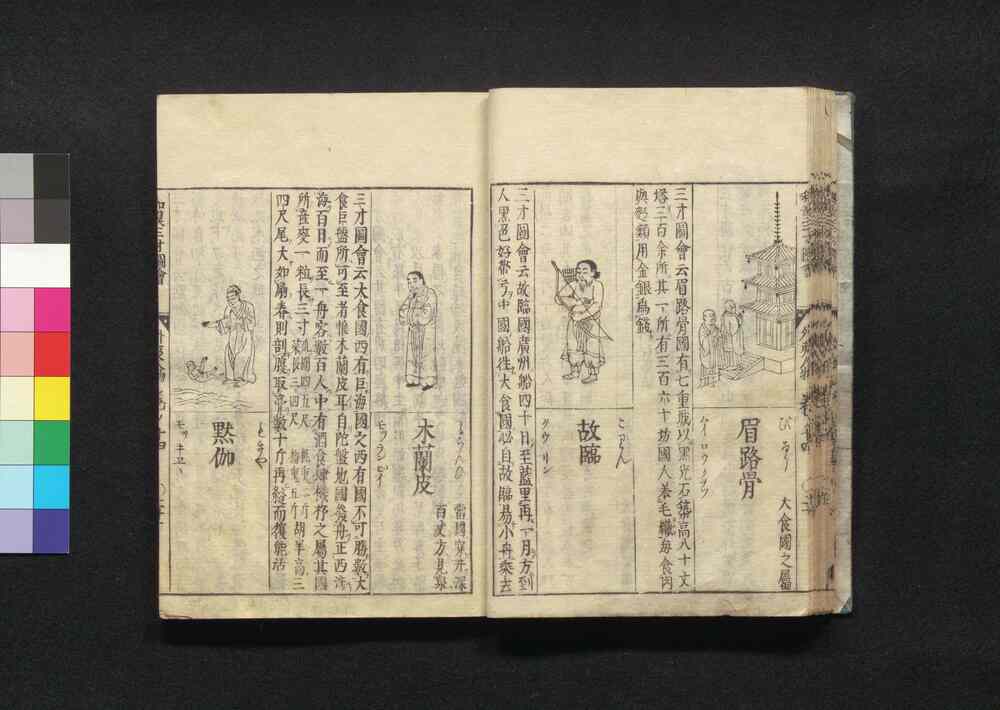 大食國之屬
眉路骨
三才圖會云眉路骨國有七重城以黒光石築高八十丈
塔三百余所其一所有三百六十坊國人衣毛織毎食肉
與麪類用金銀為錢
故臨
こりん
クウ リン
三才圖會云故臨國廣州船四十日至藍里再一月方到
人黒色好帶弓中國船徃大食國必自故臨易小舟乗去
木蘭皮
モツランピイ
當國穿井深
百丈方見泉
三才圖會云大食國西有巨海國之西有國不可勝數大
食巨盤所可至者惟木蘭皮耳自陀盤地國發舟正西渉
海百日而至一舟容數百人中有酒食肆機杼之屬其國
所産麥一粒長三寸瓜圍四五尺
胡羊高三
四尺尾大如扇春則剖腹取脂數十斤再縫而復能活
默伽